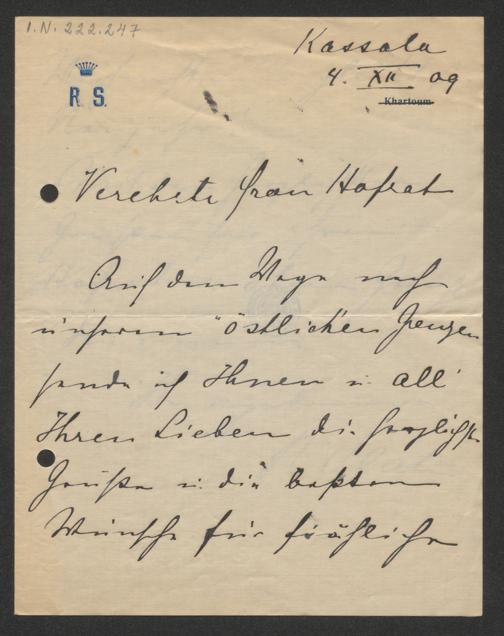 I.N. 222.247
Kassala
4. XII 09
R S.
Khartoum
Verehrte Frau Hofrat
Auf dem Wege nach
unseren "östlichen Grenzen
sende ich Ihnen u. all'
Ihren Lieben die herzlichsten
Grüße u. die besten
Wünsche für fröhliche